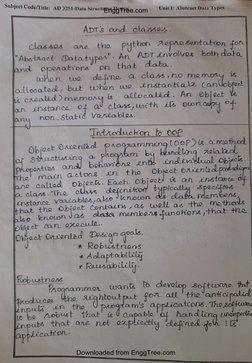 Subject Code/Title: AD 3251-Data Structures
EnggTree.com
Unit I: Abstract Data Types
ADT's and classes
classes are the python representation for
"Abstract Datatypes". An ADT involves both data
and operations on that data.
when we define a class, no memory is
allocated, but when we instantiate (an object
is created) memory is allocated. An Object is
an instance of a class, with its own copy of
any non-static variables.
Introduction to OOP
Object Oriented programming (OOP) is a method
of structuring a program by bundling related
properties and behaviors into individual objects.
The main actors in the Object oriented paradigm
are called objects. Each Object is an instance of
a class. The class definition typically specifies
instance variables, also known as data members,
that the object contains, as well as the methods
also known as data members, functions, that the
Object can execute.
Object Oriented Design goals
* Robustness
* Adaptability
* Reusability
Robustness
Programmer wants to develop software that
produces the right output for all the anticipated
inputs in the program's applications. The software
to be robust that is capable of handling unexpected
inputs that are not explicitly defined for its
application.
Downloaded from EnggTree.com